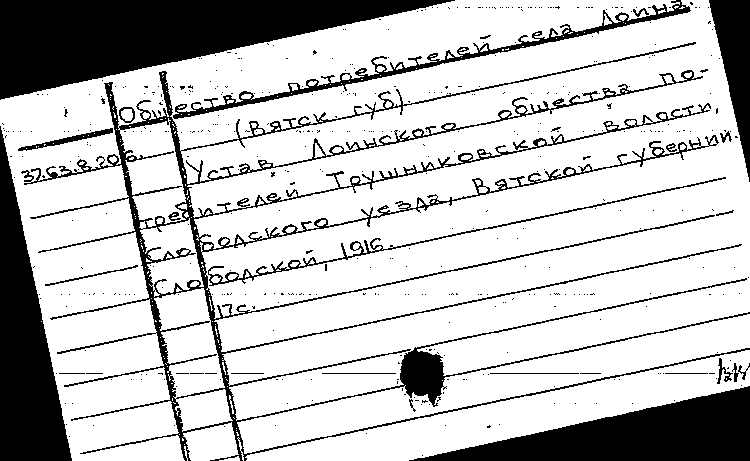 Общество потребителей села Лоина.
(Вятск. губ)
37.63.8.206.
Устав Лоинского общества по-
требителей Трушниковской волости,
Слободского уезда, Вятской губернии.
Слободской, 1916.
17с.